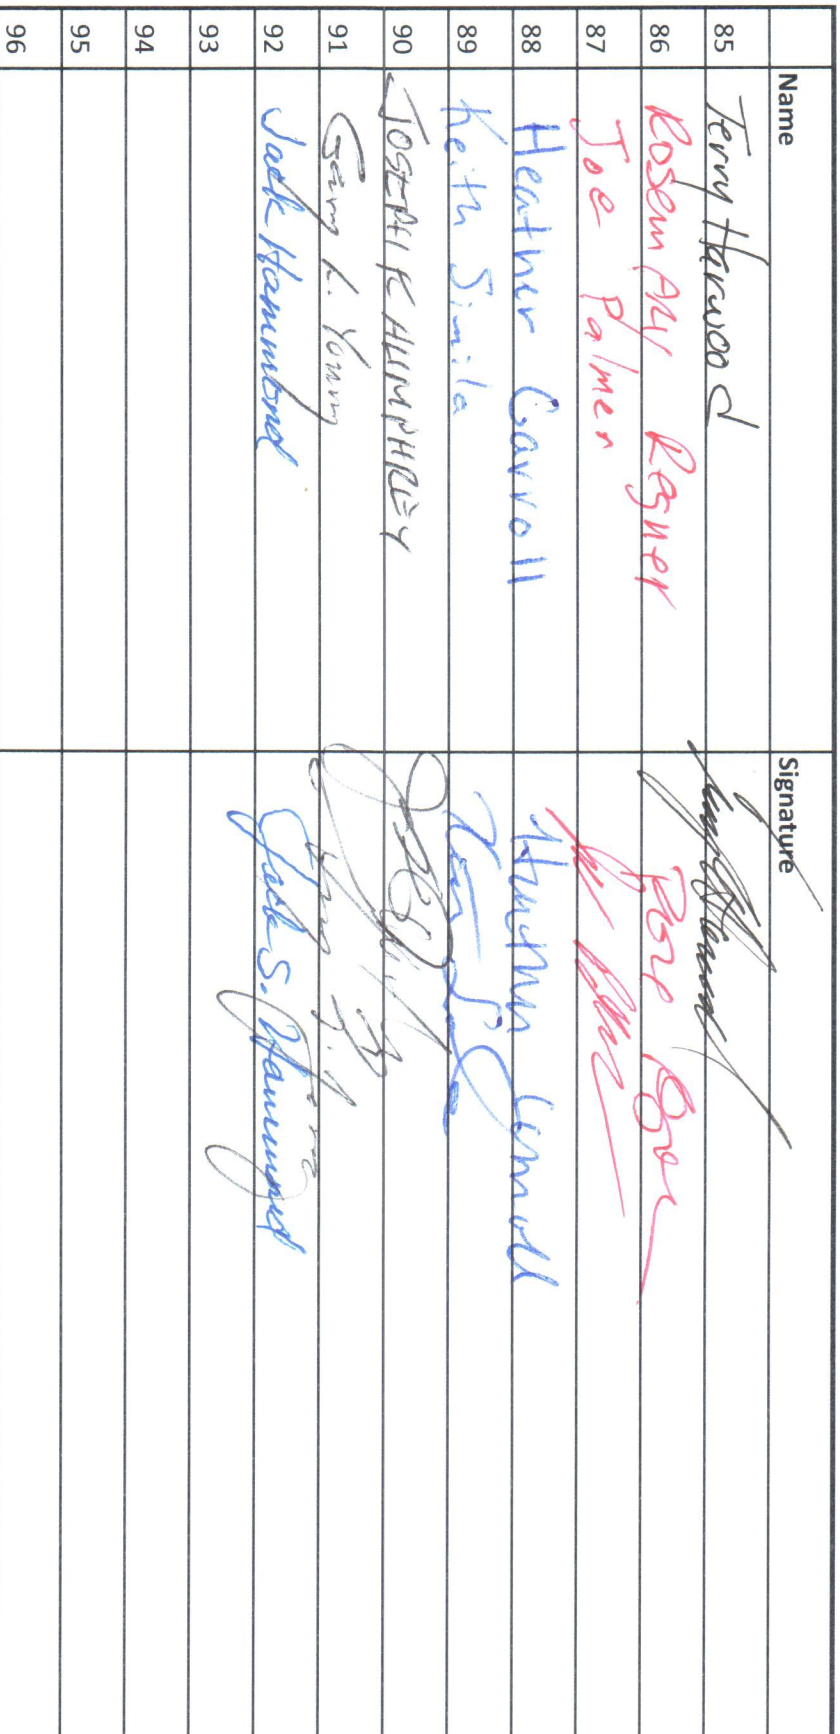 Name Signature
85 Terry Harwood
86 RosemARy Regner Rose
87 Joe Palmer
88 Heather Carroll Heather Carroll
89 Keith Simila
90 JOSEPH R HUMPHREY
91 Gary L. Young
92 Jack Hammond Jack S. Hammond
93
94
95
96